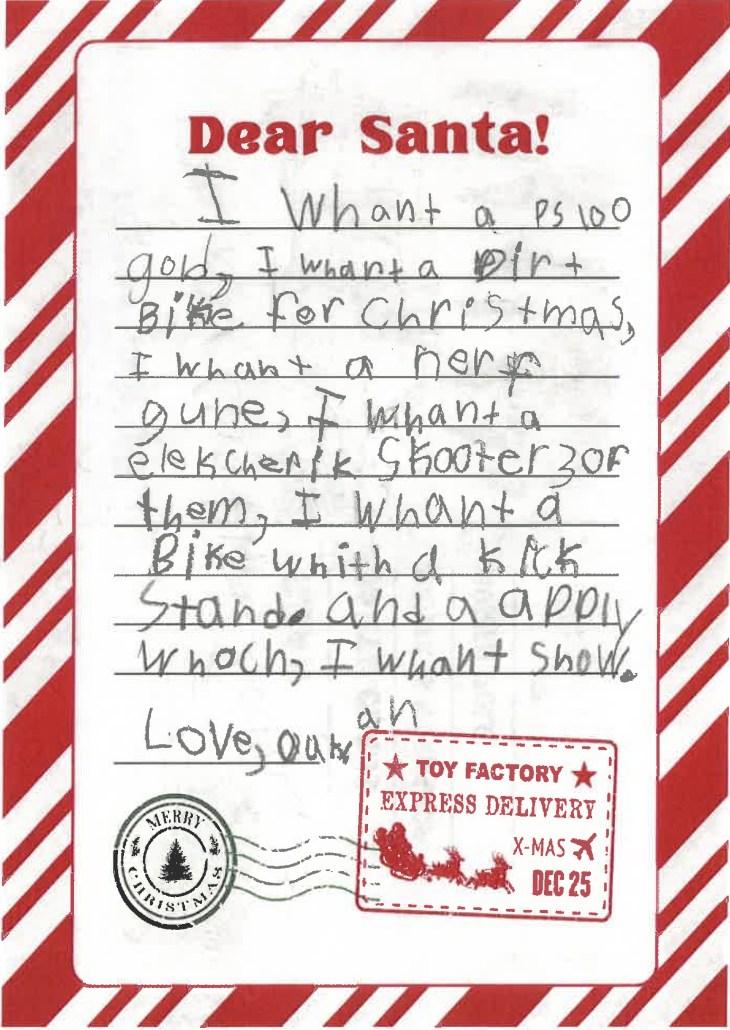 Dear Santa!
I Whant a PS 100
gold, I whant a Dirt
Bike for Christmas,
I whant a nerf
gune, I whant a
elekcherik Skooter 3 of
them, I whant a
Bike whith a kick
Stand. and a apply
whoch, I whant snow.
Love,
TOY FACTORY
EXPRESS DELIVERY
X-MAS
DEC 25
MERRY
CHRISTMAS